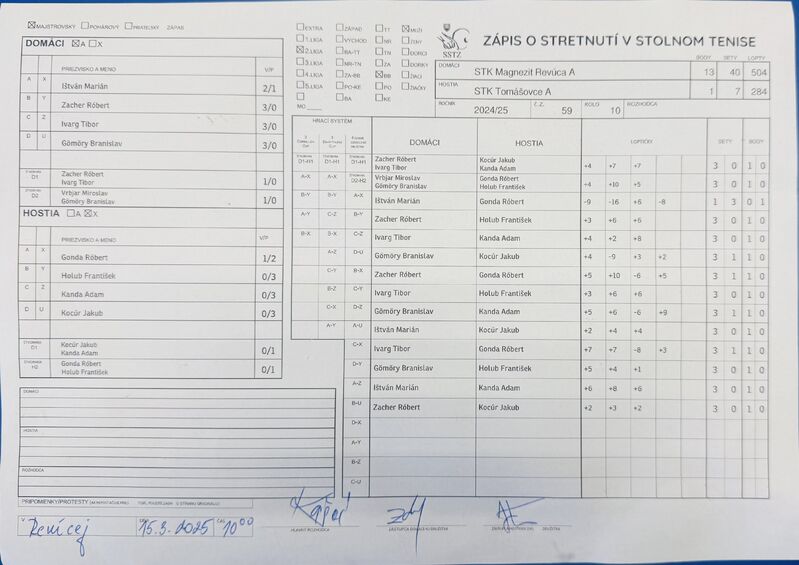 MAJSTROVSKÝ POHÁROVÝ PRIATEĽSKÝ ZÁPAS
EXTRA ZÁPAD TT MUŽI
1.LIGA VÝCHOD NR ŽENY
2.LIGA BA-TT TN DORCI
3.LIGA NR-TN ZA DORKY
4.LIGA ZA-BB BB ŽIACI
5.LIGA PO-KE PO ŽIAČKY
BA KE
MO
SSTZ
ZÁPIS O STRETNUTÍ V STOLNOM TENISE
BODY SETY LOPTY
DOMÁCI STK Magnezit Revúca A 13 40 504
HOSTIA STK Tomášovce A 1 7 284
ROČNÍK 2024/25 Č.Z. 59 KOLO 10 ROZHODCA
DOMÁCI A X
PRIEZVISKO A MENO V/P
A X Ištván Marián 2/1
B Y Zacher Róbert 3/0
C Z Ivarg Tibor 3/0
D U Gömöry Branislav 3/0
D1 Zacher Róbert
Ivarg Tibor 1/0
D2 Vrbjar Miroslav
Gömöry Branislav 1/0
HOSTIA A X
PRIEZVISKO A MENO V/P
A X Gonda Róbert 1/2
B Y Holub František 0/3
C Z Kanda Adam 0/3
D U Kocúr Jakub 0/3
D1 Kocúr Jakub
Kanda Adam 0/1
H2 Gonda Róbert
Holub František 0/1
DOMÁCI
HOSTIA
ROZHODCA
HRACÍ SYSTÉM
DOMÁCI HOSTIA LOPTIČKY SETY BODY
D1-H1 D1-H1 D1-H1 Zacher Róbert Kocúr Jakub
Ivarg Tibor Kanda Adam +4 +7 +7 3 0 1 0
A-X A-X D2-H2 Vrbjar Miroslav Gonda Róbert
Gömöry Branislav Holub František +4 +10 +5 3 0 1 0
B-Y B-Y A-X Ištván Marián Gonda Róbert -9 -16 +6 -8 1 3 0 1
A-Y C-Z B-Y Zacher Róbert Holub František +3 +6 +6 3 0 1 0
B-X B-X C-Z Ivarg Tibor Kanda Adam +4 +2 +8 3 0 1 0
A-Z D-U Gömöry Branislav Kocúr Jakub +4 -9 +3 +2 3 1 1 0
C-Y B-X Zacher Róbert Gonda Róbert +5 +10 -6 +5 3 1 1 0
B-Z C-Y Ivarg Tibor Holub František +3 +6 +6 3 0 1 0
C-X D-Z Gömöry Branislav Kanda Adam +5 +6 -6 +9 3 1 1 0
A-Y A-U Ištván Marián Kocúr Jakub +2 +4 +4 3 0 1 0
C-X Ivarg Tibor Gonda Róbert +7 +7 -8 +3 3 1 1 0
D-Y Gömöry Branislav Holub František +5 +4 +1 3 0 1 0
A-Z Ištván Marián Kanda Adam +6 +8 +6 3 0 1 0
B-U Zacher Róbert Kocúr Jakub +2 +3 +2 3 0 1 0
D-X
A-Y
B-Z
C-U
PRIPOMIENKY/PROTESTY
V 15.3.2025 10 00
HLAVNÝ ROZHODCA